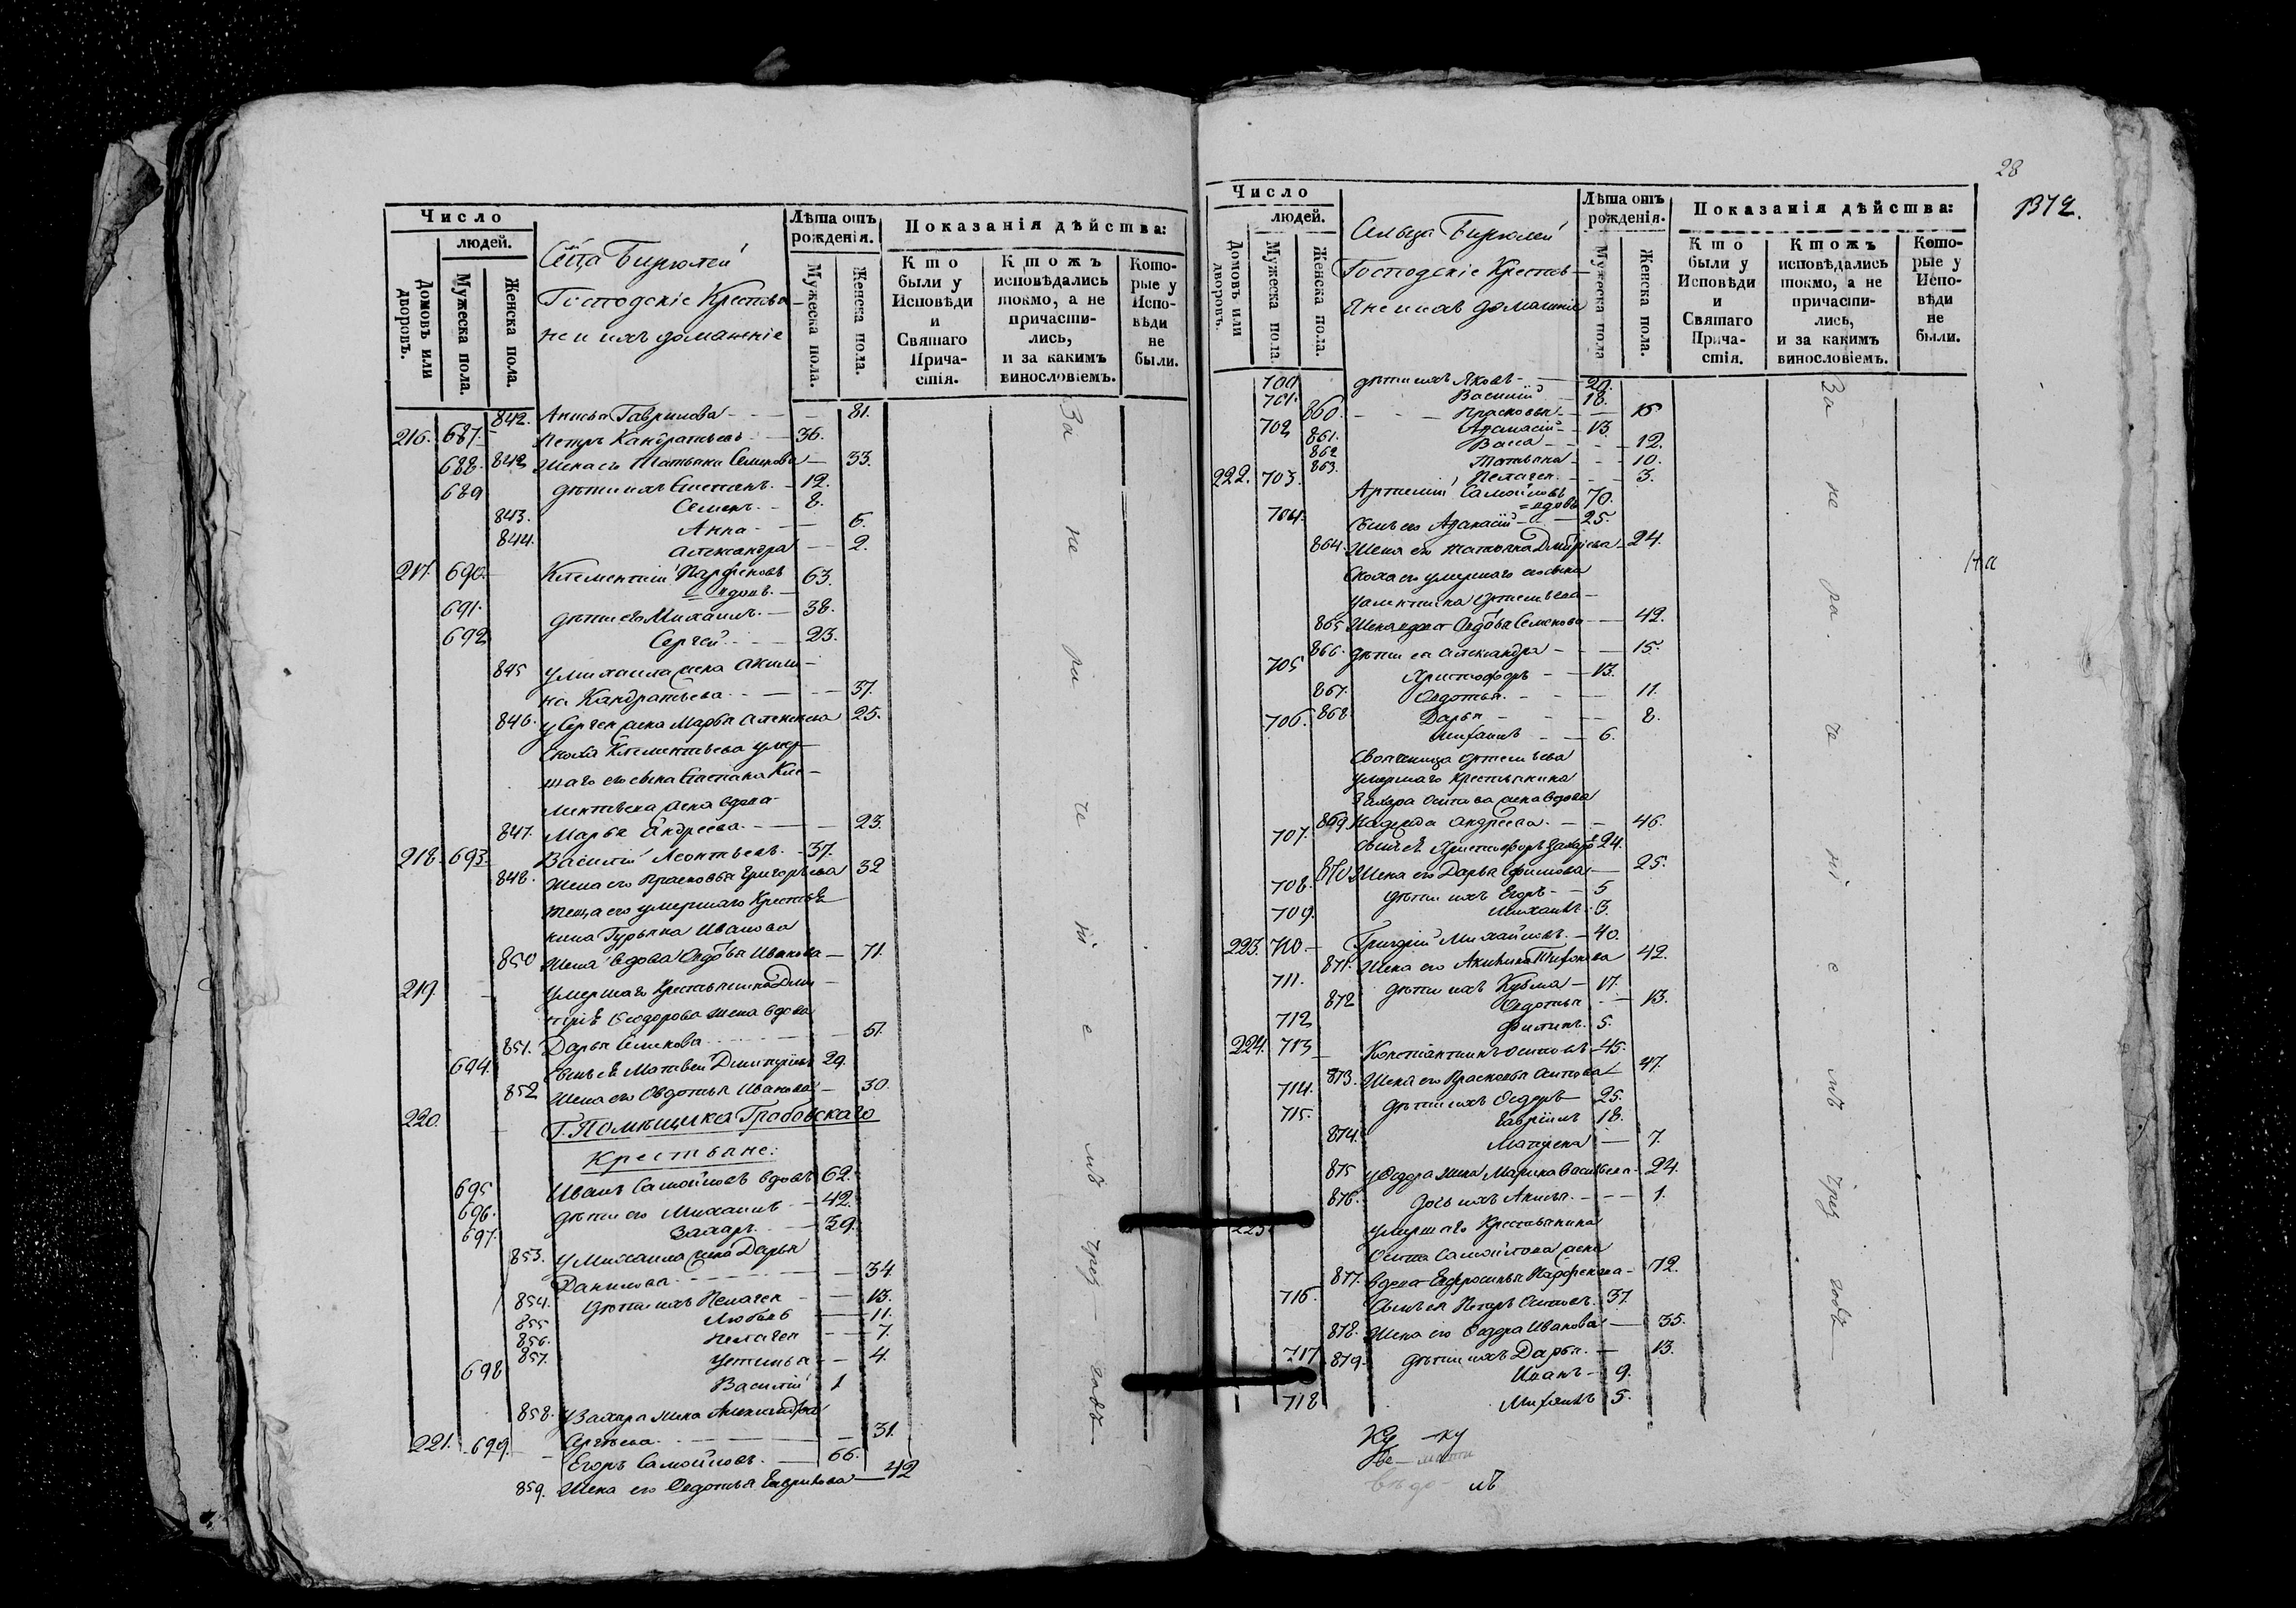 Число
людей.
Домовъ или дворовъ.
Мужеска пола.
Женска пола.
Сельца Бирюлей
Господскіе Крестья-
не и ихъ домашніе
Лѣта отъ рожденія.
Мужеска пола.
Женска пола.
Показанія дѣйства:
Кто были у Исповѣди и Святаго Причастія.
Ктожъ исповѣдались токмо, а не причастились, и за какимъ винословіемъ.
Которые у Исповѣди не были.
842. Анисья Гаврилова - 81.
216. 687. Петръ Кандратьевъ - 36.
688. 842 Жена его Татьяна Семенова - 33.
689 дѣти ихъ Степанъ. - 12.
Семенъ. - 8.
843. Анна - 6.
844. Александра - 2.
217. 690. Климентій Парфеновъ 63.
вдовъ. -
691. дѣти его Михаилъ. - 38.
692 Сергѣй - 23.
845 у Михаила жена Акили-
на Кандратьева. - 37.
846. у Сергея жена Марья Алексѣева 25.
Сноха Климентьева умер-
шаго его сына Степана Кли-
ментьева жена вдова
847. Марья Андреева. - 23.
218. 693. Василій Леонтьевъ. - 37.
848. Жена его Прасковья Григорьева 32
теща его умершаго Крестья
нина Гурьяна Иванова
850 Жена вдова Авдотья Иванова - 71.
219. умершаго Крестьянина Дми-
трія Ѳеодорова жена вдова
851. Дарья Семенова - 51.
694. Сынъ её Матвей Дмитріевъ 29.
852 Жена его Авдотья Иванова - 30.
220. Г. Помѣщика Грабовскаго
Крестьяне:
695 Иванъ Самойловъ вдовъ 62.
696. дѣти его Михаилъ - 42.
697. Захаръ. - 39.
853. у Михаила жена Дарья
Данилова - 34.
854. дѣти ихъ Пелагея - 13.
855 Любовь - 11.
856. Пелагея - 7.
857. Устинья - 4.
698 Василій 1
858. у Захара жена Александра
Сергѣева. - 31.
221. 699. Егоръ Самойловъ. - 66.
859. Жена его Авдотья Гаврилова - 42
За не и че ні е мъ чрез годъ
28
1372.
Число
людей.
Домовъ или дворовъ.
Мужеска пола.
Женска пола.
Сельца Бирюлей
Господскіе Кресть-
яне и ихъ домашніе
Лѣта отъ рожденія.
Мужеска пола
Женска пола.
Показанія дѣйства:
Кто были у Исповѣди и Святаго Причастія.
Ктожъ исповѣдались токмо, а не причастились, и за какимъ винословіемъ.
Которые у Исповѣди не были.
700 дѣти ихъ Яковъ - 20.
701. Василій - 18.
860. Прасковья - 15
702 Афанасій - 13.
861. Васса - 12.
862 Татьяна - 10.
863. Пелагея - 3.
222. 703. Артемій Самойловъ
вдовъ 70.
704. Сынъ его Афанасій - 25.
864. Жена его Татьяна Дмитріева - 24.
Сноха его умершаго его сына
Артемьева
865 Жена вдова Авдотья Семенова - 42.
866. дѣти ея Александра - 15.
705 Христофоръ - 13.
867. Авдотья - 11.
706. 868 Дарья - 8.
Михаилъ - 6.
Своячница Артемьева
умершаго Крестьянина
Захара Осипова жена вдова
869 Надежда Андреева. - 46.
707. Сынъ её Христофоръ Захаро 24.
870 Жена его Дарья Ефимова - 25.
708. дѣти ихъ Егоръ - 5
709. Михаилъ. 3.
223. 710 - Григорій Михайловъ. - 40.
871. Жена его Акилина Тихонова 42.
711. дѣти ихъ Кузьма - 17.
872 Авдотья - 13.
712 Филипъ. 5.
224. 713 Константинъ Осиповъ - 45.
873. Жена его Прасковья Антонова 47.
714. дѣти ихъ Ѳедоръ 25.
715. Гавріилъ 18.
874. Матрена - 7.
875 у Ѳедора жена Марина Васильева - 24.
876. дочь ихъ Анисья. - 1.
225 умершаго Крестьянина
Осипа Самойлова жена
877. вдова Ефросинья Парфенова - 72.
716. Сынъ ея Петръ Осиповъ. 37.
878. Жена его Ѳедора Иванова - 35.
717 879. дѣти ихъ Дарья. - 13.
Иванъ - 9.
718 Михаилъ 5.
На